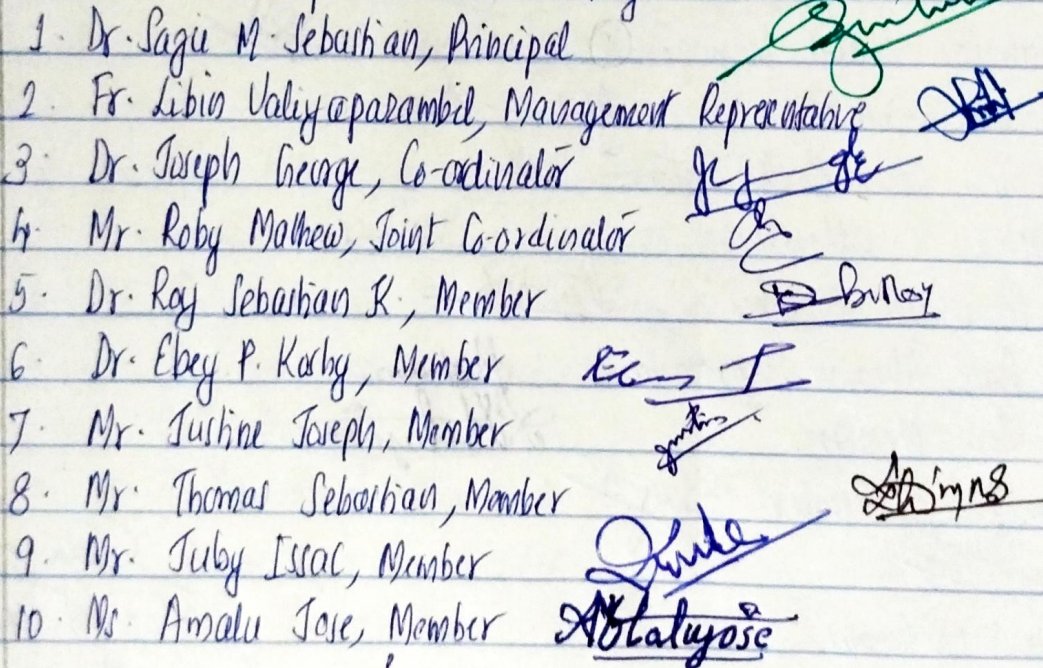 1. Dr. Sagu M. Sebastian, Principal
2. Fr. Libin Valiyaparambil, Management Representative
3. Dr. Joseph George, Co-ordinator
4. Mr. Roby Mathew, Joint Co-ordinator
5. Dr. Roy Sebastian K., Member
6. Dr. Ebey P. Koshy, Member
7. Mr. Justine Joseph, Member
8. Mr. Thomas Sebastian, Member
9. Mr. Juby Issac, Member
10. Ms. Amalu Jose, Member